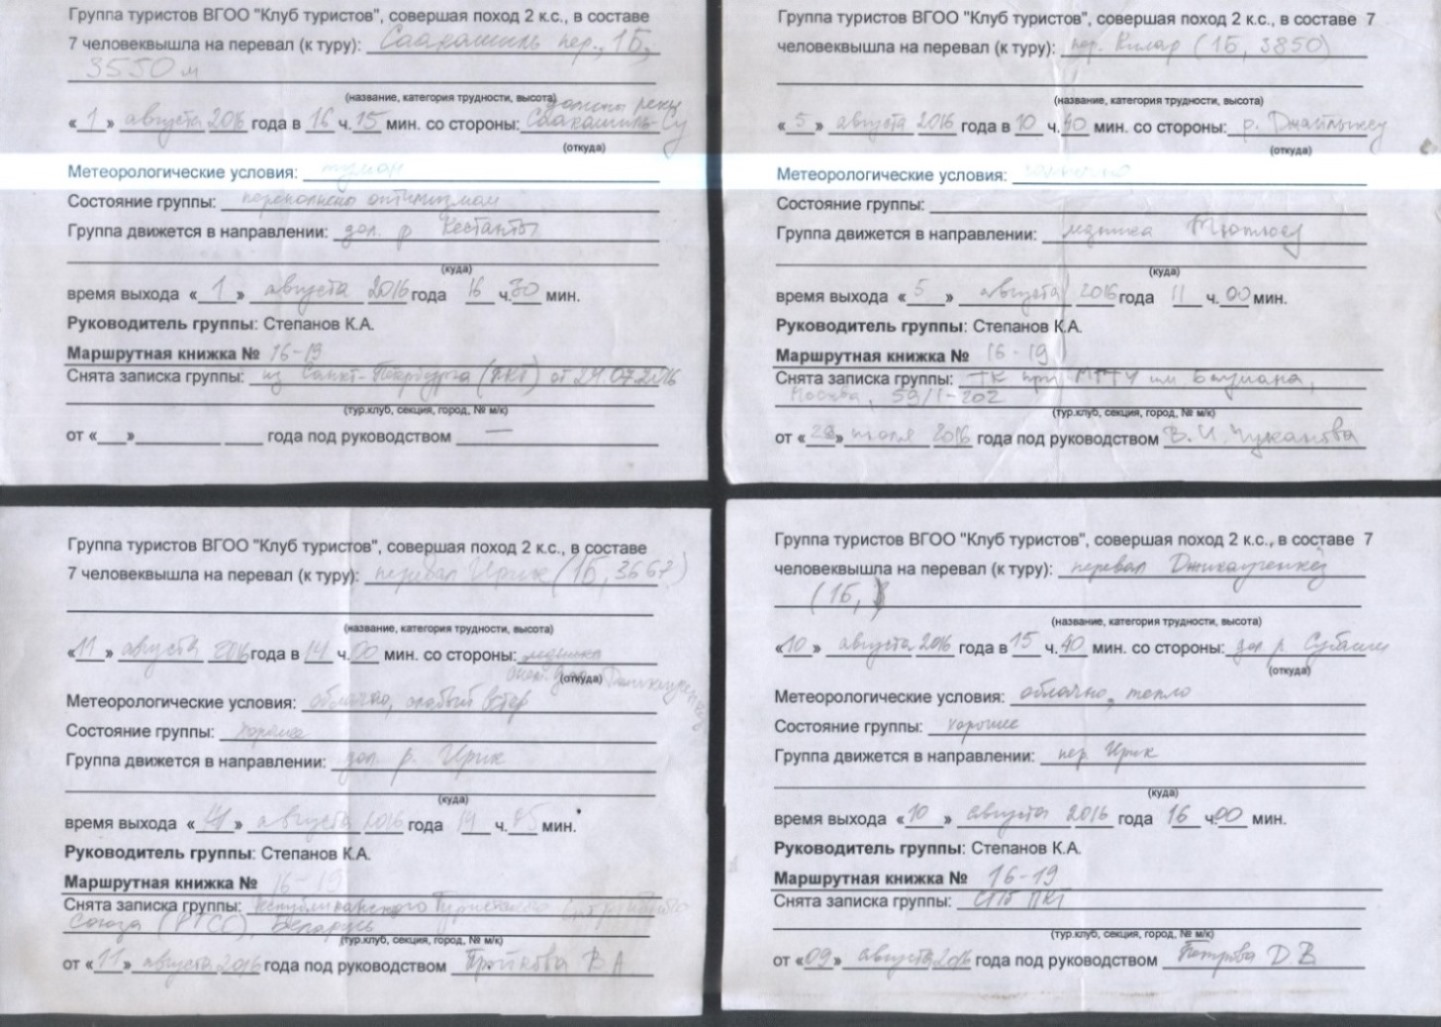 Группа туристов ВГОО "Клуб туристов", совершая поход 2 к.с., в составе
7 человеквышла на перевал (к туру): Саакашиль пер., 1Б,
3550 м
(название, категория трудности, высота)
долины реки
«1» августа 2016 года в 16 ч. 15 мин. со стороны: Саакашиль-Су
(откуда)
Метеорологические условия: туман
Состояние группы: переполнено оптимизмом
Группа движется в направлении: дол. р Кестанты
(куда)
время выхода «1» августа 2016 года 16 ч. 30 мин.
Руководитель группы: Степанов К.А.
Маршрутная книжка № 16-19
Снята записка группы: из Санкт-Петербурга (ПКТ) от 24.07.2016
(тур.клуб, секция, город, № м/к)
от «__» года под руководством —
Группа туристов ВГОО "Клуб туристов", совершая поход 2 к.с., в составе 7
человеквышла на перевал (к туру): пер. Килар (1Б, 3850)
(название, категория трудности, высота)
«5» августа 2016 года в 10 ч. 40 мин. со стороны: р.
(откуда)
Метеорологические условия:
Состояние группы:
Группа движется в направлении: ледника
(куда)
время выхода «5» августа 2016 года 11 ч. 00 мин.
Руководитель группы: Степанов К.А.
Маршрутная книжка № 16-19
Снята записка группы: ТК при МГТУ им Баумана,
Москва, 59/1-202
(тур.клуб, секция, город, № м/к)
от «28» июля 2016 года под руководством В.И. Чуканова
Группа туристов ВГОО "Клуб туристов", совершая поход 2 к.с., в составе
7 человеквышла на перевал (к туру): перевал Ирик (1Б, 3667)
(название, категория трудности, высота)
«11» августа 2016 года в 14 ч. 00 мин. со стороны: ледника
(откуда)
Метеорологические условия: облачно, слабый ветер
Состояние группы: хорошее
Группа движется в направлении: дол. р. Ирик
(куда)
время выхода «11» августа 2016 года 14 ч. мин.
Руководитель группы: Степанов К.А.
Маршрутная книжка № 16-19
Снята записка группы: Республиканского Туристско Спортивного
Союза (РТСС), Беларусь
(тур.клуб, секция, город, № м/к)
от «11» августа 2016 года под руководством В А
Группа туристов ВГОО "Клуб туристов", совершая поход 2 к.с., в составе 7
человеквышла на перевал (к туру): перевал Джикаугенкез
(1Б,
(название, категория трудности, высота)
«10» августа 2016 года в 15 ч. 40 мин. со стороны: дол р. Субаши
(откуда)
Метеорологические условия: облачно, тепло
Состояние группы: хорошее
Группа движется в направлении: пер. Ирик
(куда)
время выхода «10» августа 2016 года 16 ч. 00 мин.
Руководитель группы: Степанов К.А.
Маршрутная книжка № 16-19
Снята записка группы: СПб ПКТ
(тур.клуб, секция, город, № м/к)
от «09» августа 2016 года под руководством Петрова Д.В